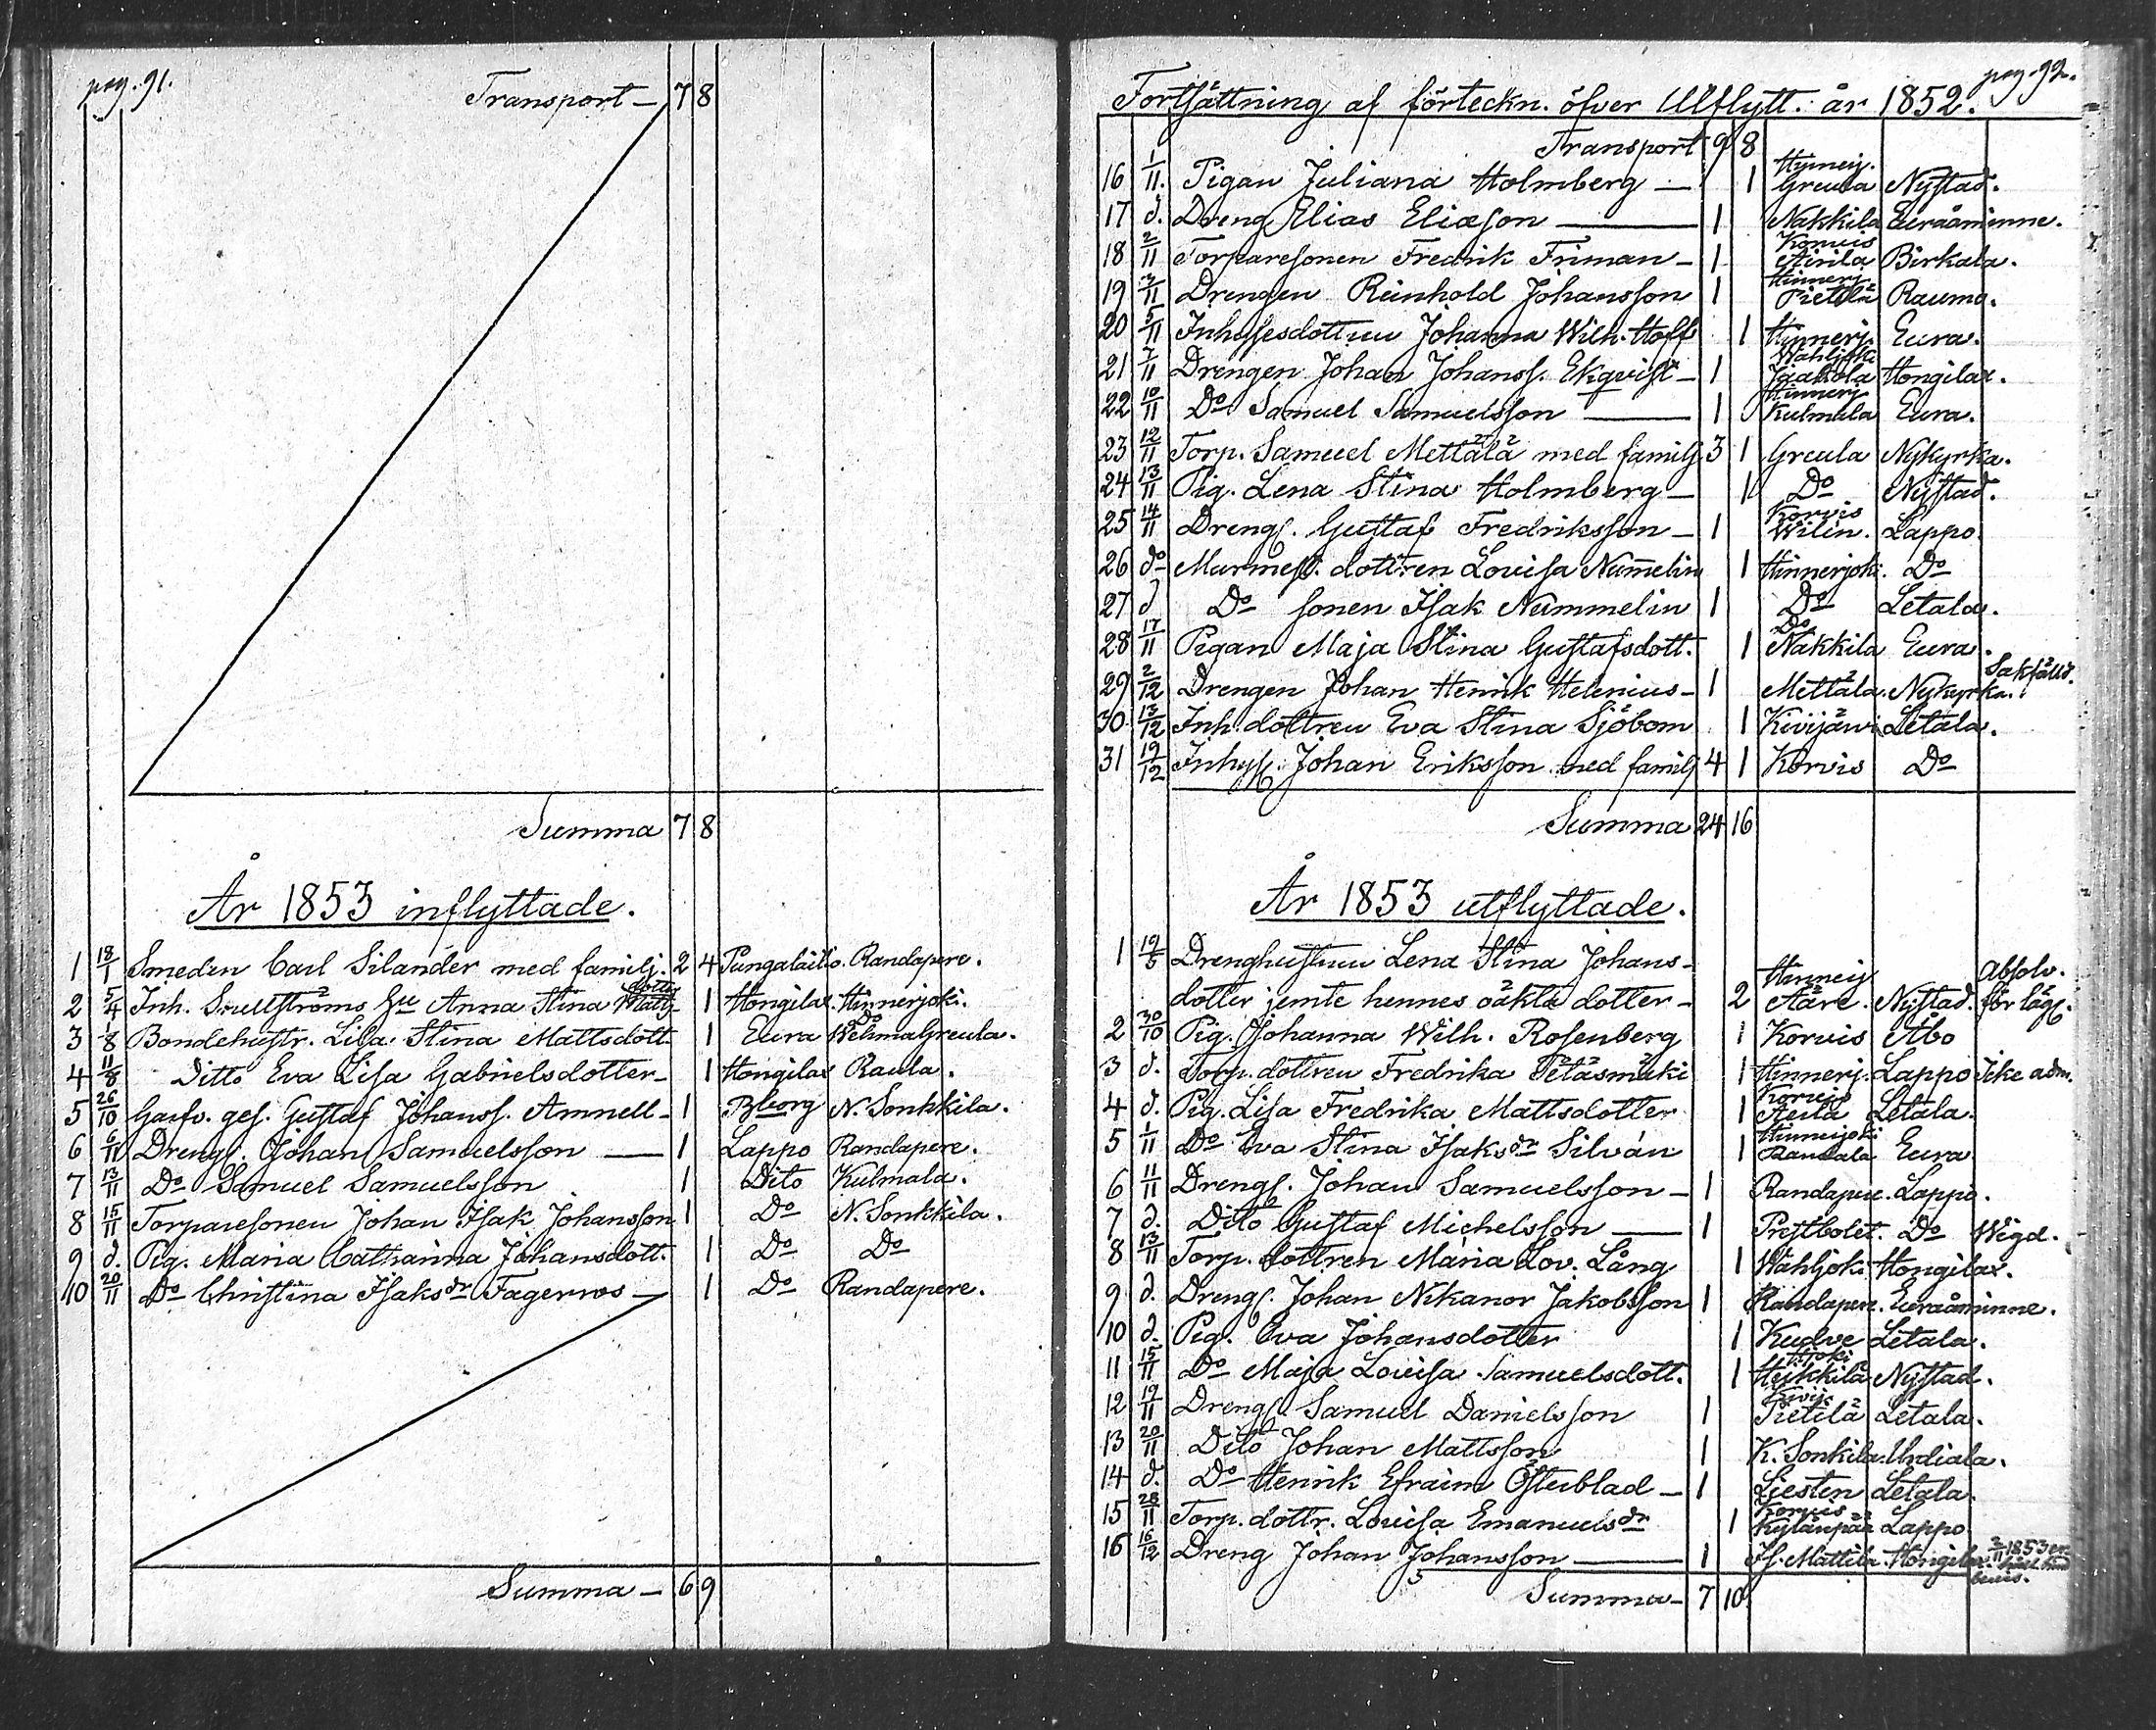 pag. 91.
Transport – 7 8
Summa 7 8
År 1853 inflyttade.
1 18/1 Smeden Carl Silander med familj. 2 4 Pungalaitio. Randapere.
dotter
2 5/4 Inh. Snellströms Anna Stina Matts- 1 Hongilax. Hinnerjoki.
Do
3 1/8 Bondehustr. Lisa Stina Mattsdott. 1 Eura Wehma Greula.
4 11/8 Ditto Eva Lisa Gabrielsdotter – 1 Hongilax Raula.
5 26/10 Garfv. ges. Gustaf Johanss. Amnell – 1 Bborg N. Sonkkila.
6 6/11 Drengs. Johan Samuelsson — 1 Lappo Randapere.
7 13/11 Do Samuel Samuelsson 1 Dito Kulmala.
8 15/11 Torparesonen Johan Isak Johansson 1 Do N. Sonkkila.
9 d. Pig. Maria Catharina Johansdott. 1 Do Do
10 20/11 Do Christina Isaksdr Fagerroos – 1 Do Randapere.
Summa – 6 9
pag. 92.
Fortsättning af förteckn. öfver Utflytt. år 1852.
Transport 9 8
Hinnerj.
16 1/11. Pigan Juliana Holmberg — 1 Greula Nystad.
17 d. Dreng Elias Eliasson — 1 Nakkila Euraåminne.
Korvis
18 2/11 Torparesonen Fredrik Friman – 1 Airila Birkala.
Hinnerj.
19 3/11 Drengen Reinhold Johansson 1 Pietilä Raumo.
20 5/11 Inhysesdottren Johanna Wilh. Hoff 1 Hinnerj. Eura.
Wahljoki
21 7/11 Drengen Johan Johanss. Ekqvist – 1 Jaakola Hongilax.
Hinnerj
22 10/11 Do Samuel Samuelsson — 1 Kulmala Eura.
23 12/11 Torp. Samuel Mettälä med familj 3 1 Greula Nykyrka.
24 13/11 Pig. Lena Stina Holmberg – 1 Do Nystad.
Korvis
25 14/11 Drengs. Gustaf Fredriksson – 1 Wilin. Lappo
26 do Murmest. dottren Lovisa Nummelin 1 Hinnerjoki. Do
27 d Do sonen Isak Nummelin 1 Do Letala.
Do
28 17/11 Pigan Maja Stina Gustafsdott. 1 Nakkila Eura.
Sakfälld.
29 2/12 Drengen Johan Henrik Helenius – 1 Mettälä. Nykyrka.
30 13/12 Inh. dottren Eva Stina Sjöbom 1 Kivijärvi Letala.
31 19/12 Inhys. Johan Eriksson med familj 4 1 Korvis Do
Summa 24 16
År 1853 utflyttade.
1 19/5 Drenghustrun Lena Stina Johans-
Hinnerj absolv.
dotter jemte hennes oäkta dotter – 2 Aäre. Nystad. för läges.
2 30/10 Pig. Johanna Wilh. Rosenberg 1 Korvis Åbo
3 d. Torp. dottren Fredrika Petäsmäki 1 Hinnerj. Lappo Icke adm.
Korvis
4 d. Pig. Lisa Fredrika Mattsdotter 1 Letala.
Hinnerjoki
5 1/11 Do Eva Stina Isaksdr Silván 1 Eura
6 11/11 Drengs. Johan Samuelsson – 1 Randapere. Lappo.
7 d. Dito Gustaf Michelsson — 1 Prestbolet. Do Wigd.
8 13/11 Torp. dottren Maria Lov. Lång 1 Wahljoki Hongilax.
9 d. Drengs. Johan Nikanor Jakobsson 1 Randapere. Euraåminne.
10 d. Pig. Eva Johansdotter 1 Kudve Letala.
Hjoki
11 15/11 Do Maja Lovisa Samuelsdott. 1 Heikkilä Nystad.
Kivij.
12 19/11 Drengs. Samuel Danielsson 1 Pietilä Letala.
13 20/11 Dito Johan Mattsson 1 K. Sonkila. Urdiala.
14 d. Do Henrik Efraim Österblad – 1 Liesten Letala.
Korvis
15 28/11 Torp. dottr. Lovisa Emanuelsdr 1 Kylänpää Lappo
16 16/12 Dreng Johan Johansson — 1 Mattila. Hongilax. 2/11 1853
Summa – 7 10